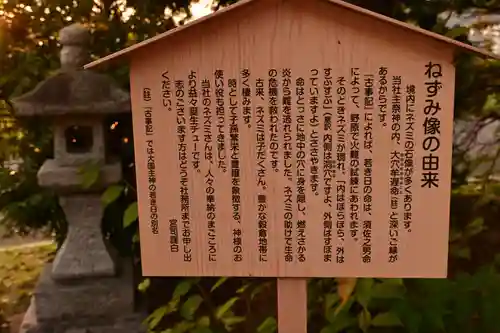 ねずみ像の由来
境内にネズミの石像が多くあります。
当社主祭神の内、大穴牟遅命(註)と深いご縁が
あるからです。
『古事記』によれば、若き日の命は、須佐之男命
によって、野原で火難の試練にあわれました。
そのときネズミが現れ、「内はほらほら、外は
すぶすぶ」(意訳 内側は洞穴ですよ、外側はすぼま
っていますよ)とささやきます。
命はとっさに地中の穴に身を隠し、燃えさかる
炎から難を逃れられました。ネズミの助けで生命
の危機を救われたのです。
古来、ネズミは子だくさん。豊かな穀倉地帯に
多く棲みます。
時として子孫繁栄と豊穣を象徴する、神様のお
使い役も担ってきました。
当社のネズミさんは、人々の奉納のまごころに
より益々誕生チューです。
志のございます方はどうぞ社務所までお申し出
ください。
宮司謹白
(註)『古事記』では大國主神の若き日の別名